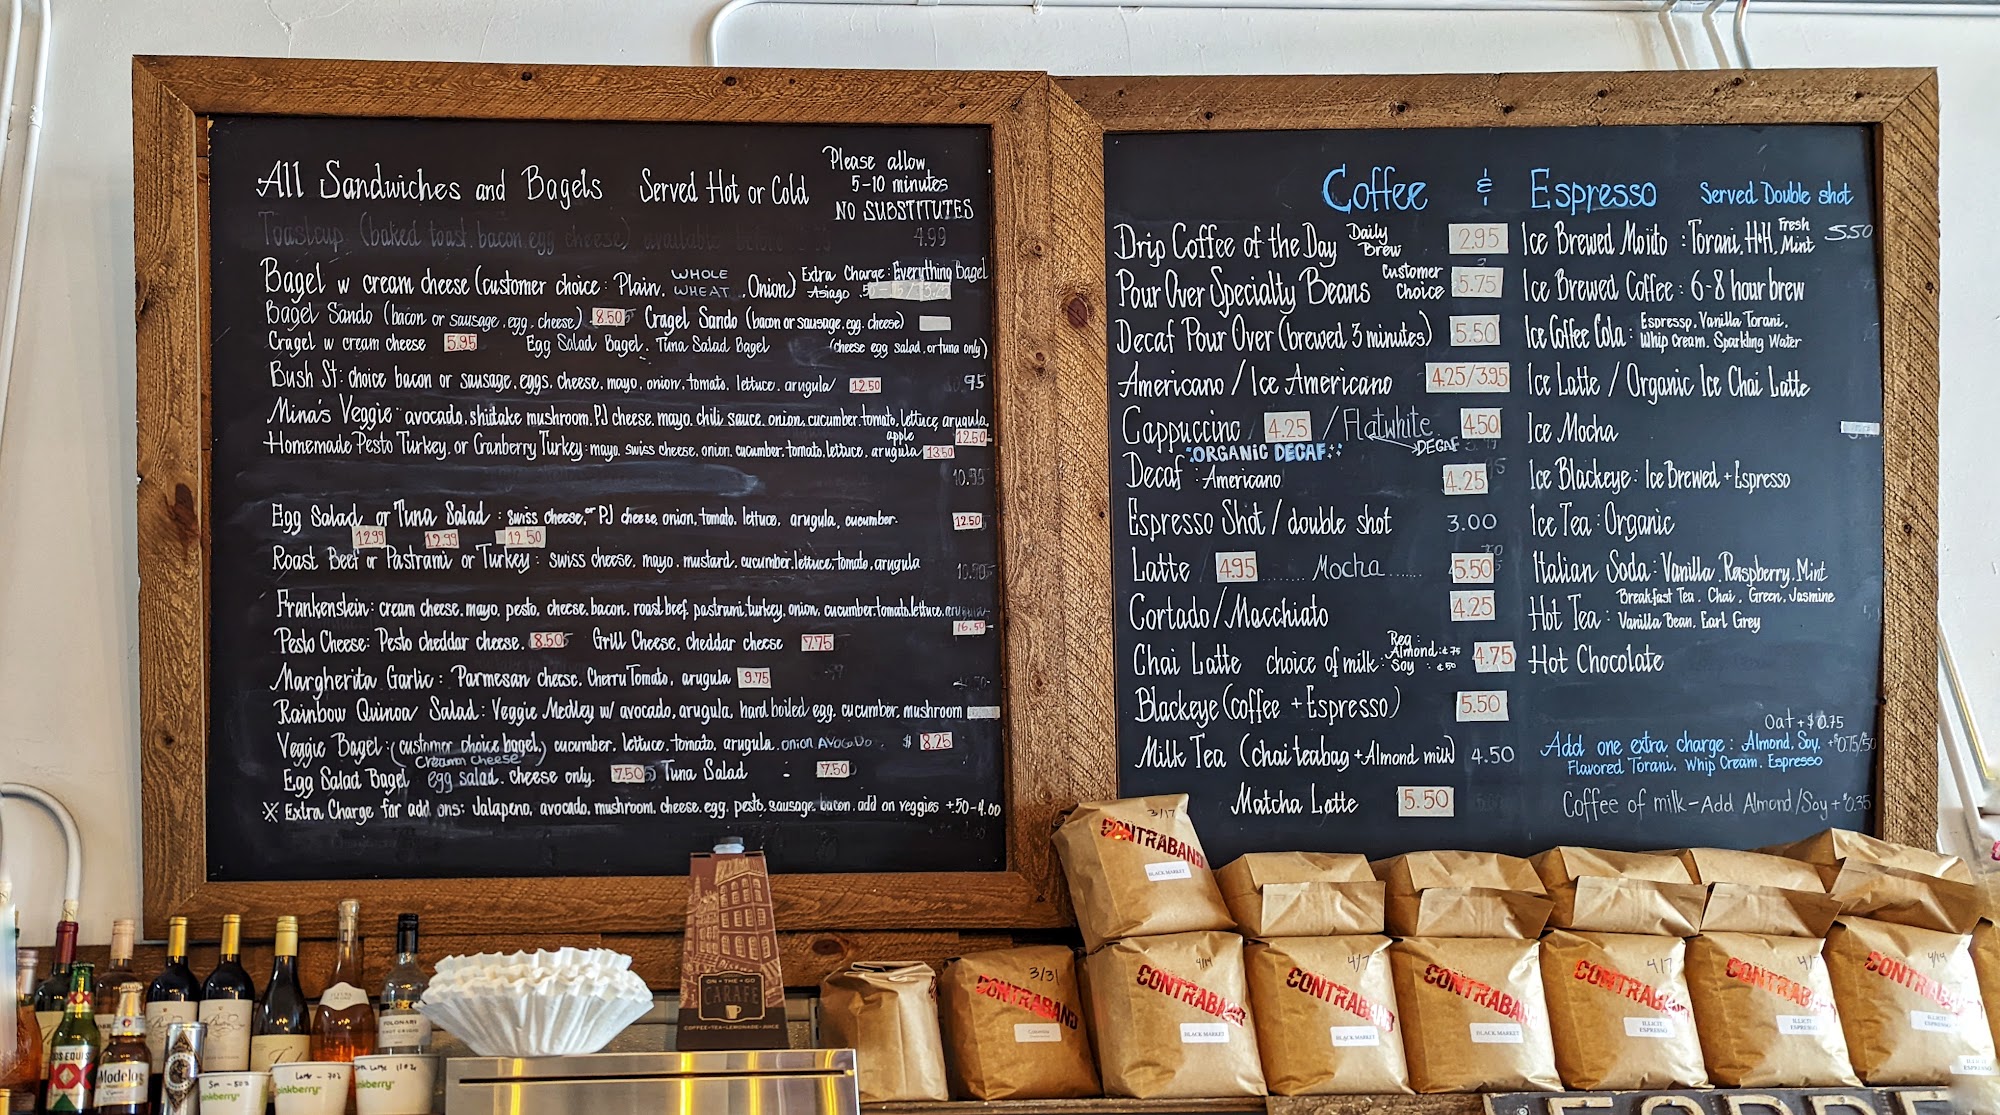 All Sandwiches and Bagels Served Hot or Cold
Please allow
5-10 minutes
NO SUBSTITUTES
Toastcup (baked toast, bacon, egg, cheese) available 4.99
Bagel w cream cheese (customer choice: Plain, WHOLE WHEAT, Onion) Extra Charge: Everything Bagel
Asiago
Bagel Sando (bacon or sausage, egg, cheese) 8.50 Cragel Sando (bacon or sausage, egg, cheese)
Cragel w cream cheese 5.95 Egg Salad Bagel, Tuna Salad Bagel (cheese egg salad, or tuna only)
Bush St: choice bacon or sausage, eggs, cheese, mayo, onion, tomato, lettuce, arugula 12.50
Mina's Veggie: avocado, shiitake mushroom, PJ cheese, mayo, chili, sauce, onion, cucumber, tomato, lettuce, arugula, 12.50
apple
Homemade Pesto Turkey, or Cranberry Turkey: mayo, swiss cheese, onion, cucumber, tomato, lettuce, arugula 13.50
10.95
Egg Salad or Tuna Salad: swiss cheese, or PJ cheese, onion, tomato, lettuce, arugula, cucumber. 12.50
12.99 12.99 12.50
Roast Beef or Pastrami or Turkey: swiss cheese, mayo, mustard, cucumber, lettuce, tomato, arugula
Frankenstein: cream cheese, mayo, pesto, cheese, bacon, roast beef, pastrami, turkey, onion, cucumber, tomato, lettuce, arugula
16.50
Pesto Cheese: Pesto cheddar cheese. 8.50 Grill Cheese, cheddar cheese 7.75
Margherita Garlic: Parmesan cheese, Cherry Tomato, arugula 9.75
Rainbow Quinoa Salad: Veggie Medley w/ avocado, arugula, hard boiled egg, cucumber, mushroom
Veggie Bagel: (customer choice bagel,) cucumber, lettuce, tomato, arugula, onion AVOCADO $ 8.25
Cream cheese
Egg Salad Bagel egg salad, cheese only. 7.50 Tuna Salad - 7.50
※ Extra Charge for add ons: Jalapeno, avocado, mushroom, cheese, egg, pesto, sausage, bacon, add on veggies +.50-4.00
Coffee & Espresso Served Double shot
Drip Coffee of the Day Daily Brew 2.95
Pour Over Specialty Beans Customer Choice 5.75
Decaf Pour Over (brewed 3 minutes) 5.50
Americano / Ice Americano 4.25/3.95
Cappuccino 4.25 / Flatwhite 4.50
ORGANIC DECAF DECAF
Decaf: Americano 4.25
Espresso Shot / double shot 3.00
Latte 4.95 ........ Mocha ...... 5.50
Cortado/Macchiato 4.25
Chai Latte choice of milk: Reg: Almond: Soy: 4.75
Blackeye (coffee + Espresso) 5.50
Milk Tea (chai teabag + Almond milk) 4.50
Matcha Latte 5.50
Ice Brewed Mojito: Torani, H+H, Fresh Mint 5.50
Ice Brewed Coffee: 6-8 hour brew
Ice Coffee Cola: Espresso, Vanilla Torani,
Whip Cream, Sparkling Water
Ice Latte / Organic Ice Chai Latte
Ice Mocha
Ice Blackeye: Ice Brewed + Espresso
Ice Tea: Organic
Italian Soda: Vanilla, Raspberry, Mint
Hot Tea: Breakfast Tea, Chai, Green, Jasmine
Vanilla Bean, Earl Grey
Hot Chocolate
Oat + $0.75
Add one extra charge: Almond, Soy, +$0.75/50
Flavored Torani, Whip Cream, Espresso
Coffee of milk - Add Almond/Soy + $0.35
3/17
CONTRABAND
BLACK MARKET
3/31
CONTRABAND
4/14
CONTRABAND
BLACK MARKET
4/7
CONTRABAND
BLACK MARKET
CONTRABAND
BLACK MARKET
4/7
CONTRABAND
ILLICIT
ESPRESSO
CONTRABAND
ILLICIT
ESPRESSO
4/14
CONTRABAND
ILLICIT
ESPRESSO
ON • THE • GO
CARAFE
COFFEE • TEA • LEMONADE • JUICE
DOS EQUIS
XX
Modelo
pinkberry
pinkberry
pinkberry